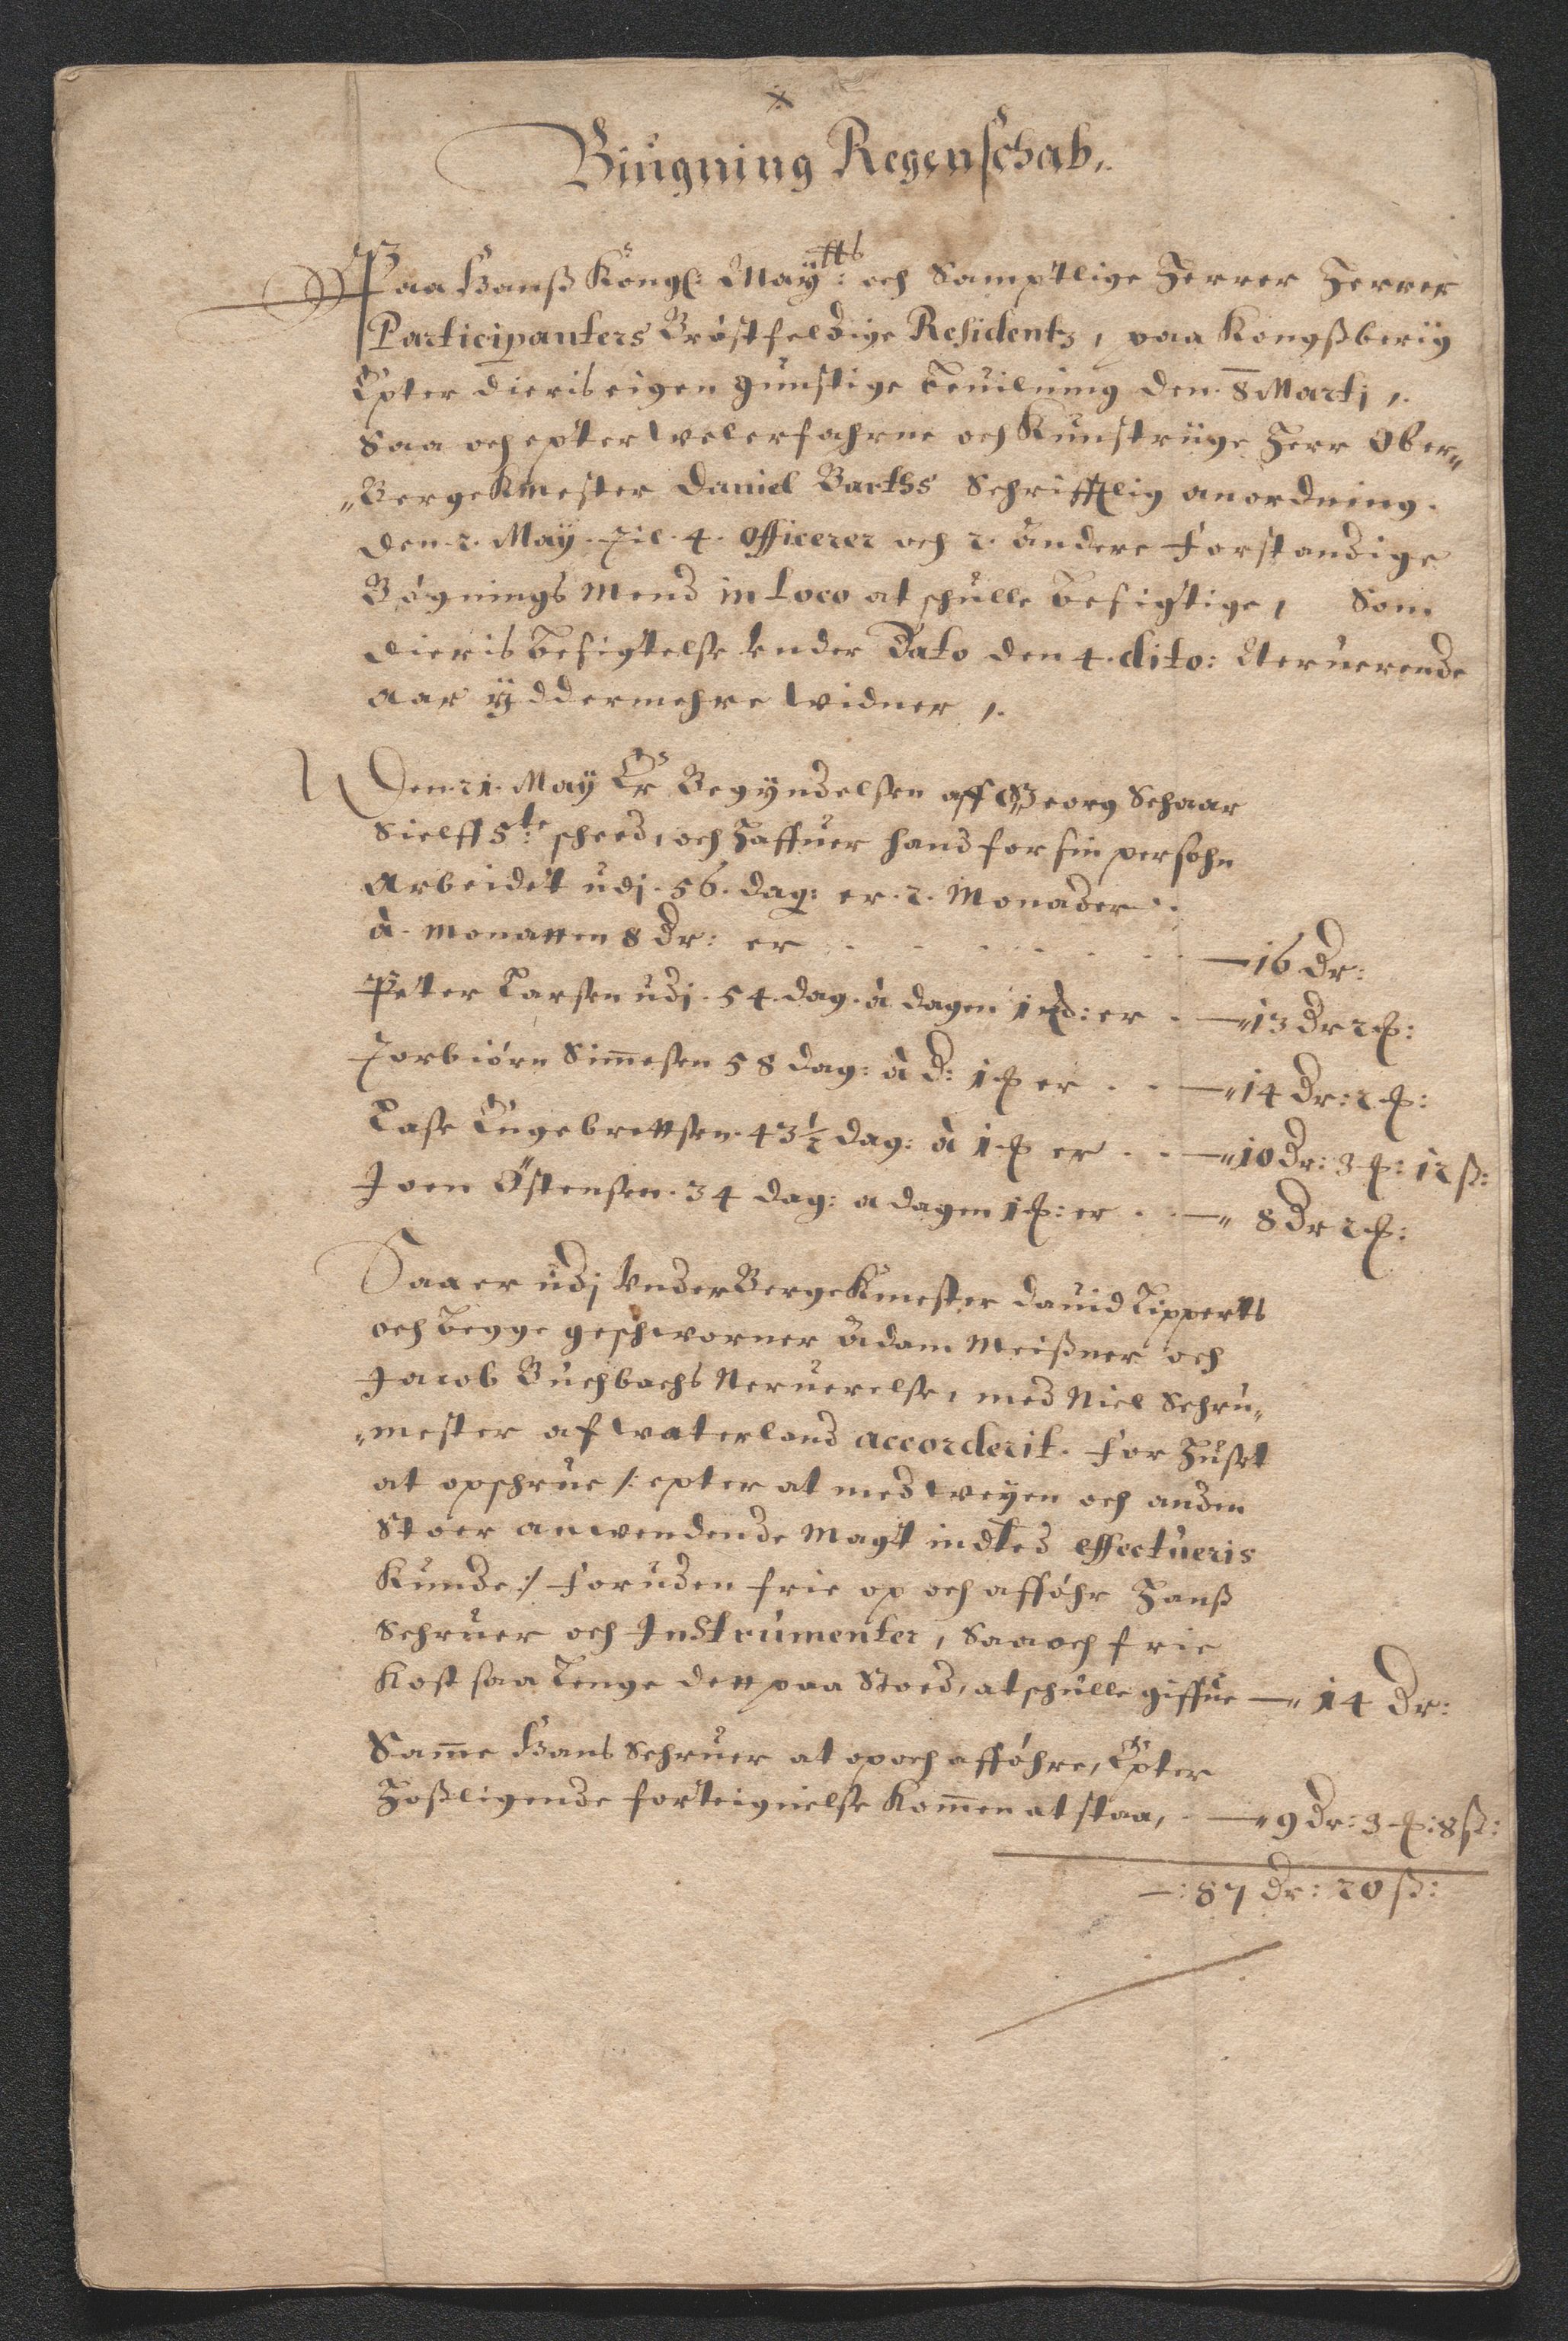 Biugning Regenschab,.
Paa Hanß Kongl: Maÿtts: och Samptlige Herrer Herrer
Participanters Bröstfeldige Residentz, paa Kongßberiig
Epter dieris eigen gunstige beuilning den 8 Martj ,.
Saa och epter welerfahrne och Kunstriige Herr Ober„
„BergeKmester Daniel Barths Schrifftlig anordning.
den. 2. Maÿ. til. 4. officerer och 2. andere Forstandige
Bögnings Mend in Loco at schulle besigtige, Som
dieris besigtelse under Dato den 4. dito: Neruerende
aar ÿddermehre widner ,.
Den. 21. Maÿ Er Begÿndelsen aff Georg Schaar
Sielff 5te: scheed, och Haffuer hand for sin persohn
Arbeidet udj. 56. dag: er. 2. Monader.
à. Monatten 8 Dr: er — 16 Dr:
Peter Larsen udj. 54. dag. à dagen 1 : er . — „13 Dr 2 :
Torbiörn Simesen 58 dag: à d: 1 er . . — „14 Dr: 2 :
Lase Engebrettsen. 43½ dag: à 1 er . . — „10 Dr: 3 : 12 ß:
Joen Östensen. 34 dag: a dagen 1 : er . . — „ 8 Dr 2 :
Saa er udj UnderBergeKmester Dauid Lipperts
och begge geschworner Adam Meißner och
Jacob Buchbachs Neruerelse, med Niel Schru„
„mester af Waterland accorderit. for Huset
at opschrue /: epter at med weÿen och anden
Stoer anwendende Magt indted effectueris
Kunde :/ Foruden frie op och afföhr Hanß
Schruer och Instrumenter, Saa och frie
Kost saa Lenge dett paa Stoed, at schulle giffue — „ 14 Dr:
Same Hans Schruer at op och afföhre, Epter
Hoßligende forteignelse Komen at staa, . — „ 9 Dr: 3 : 8 ß:
— : 87 Dr: 20 ß: